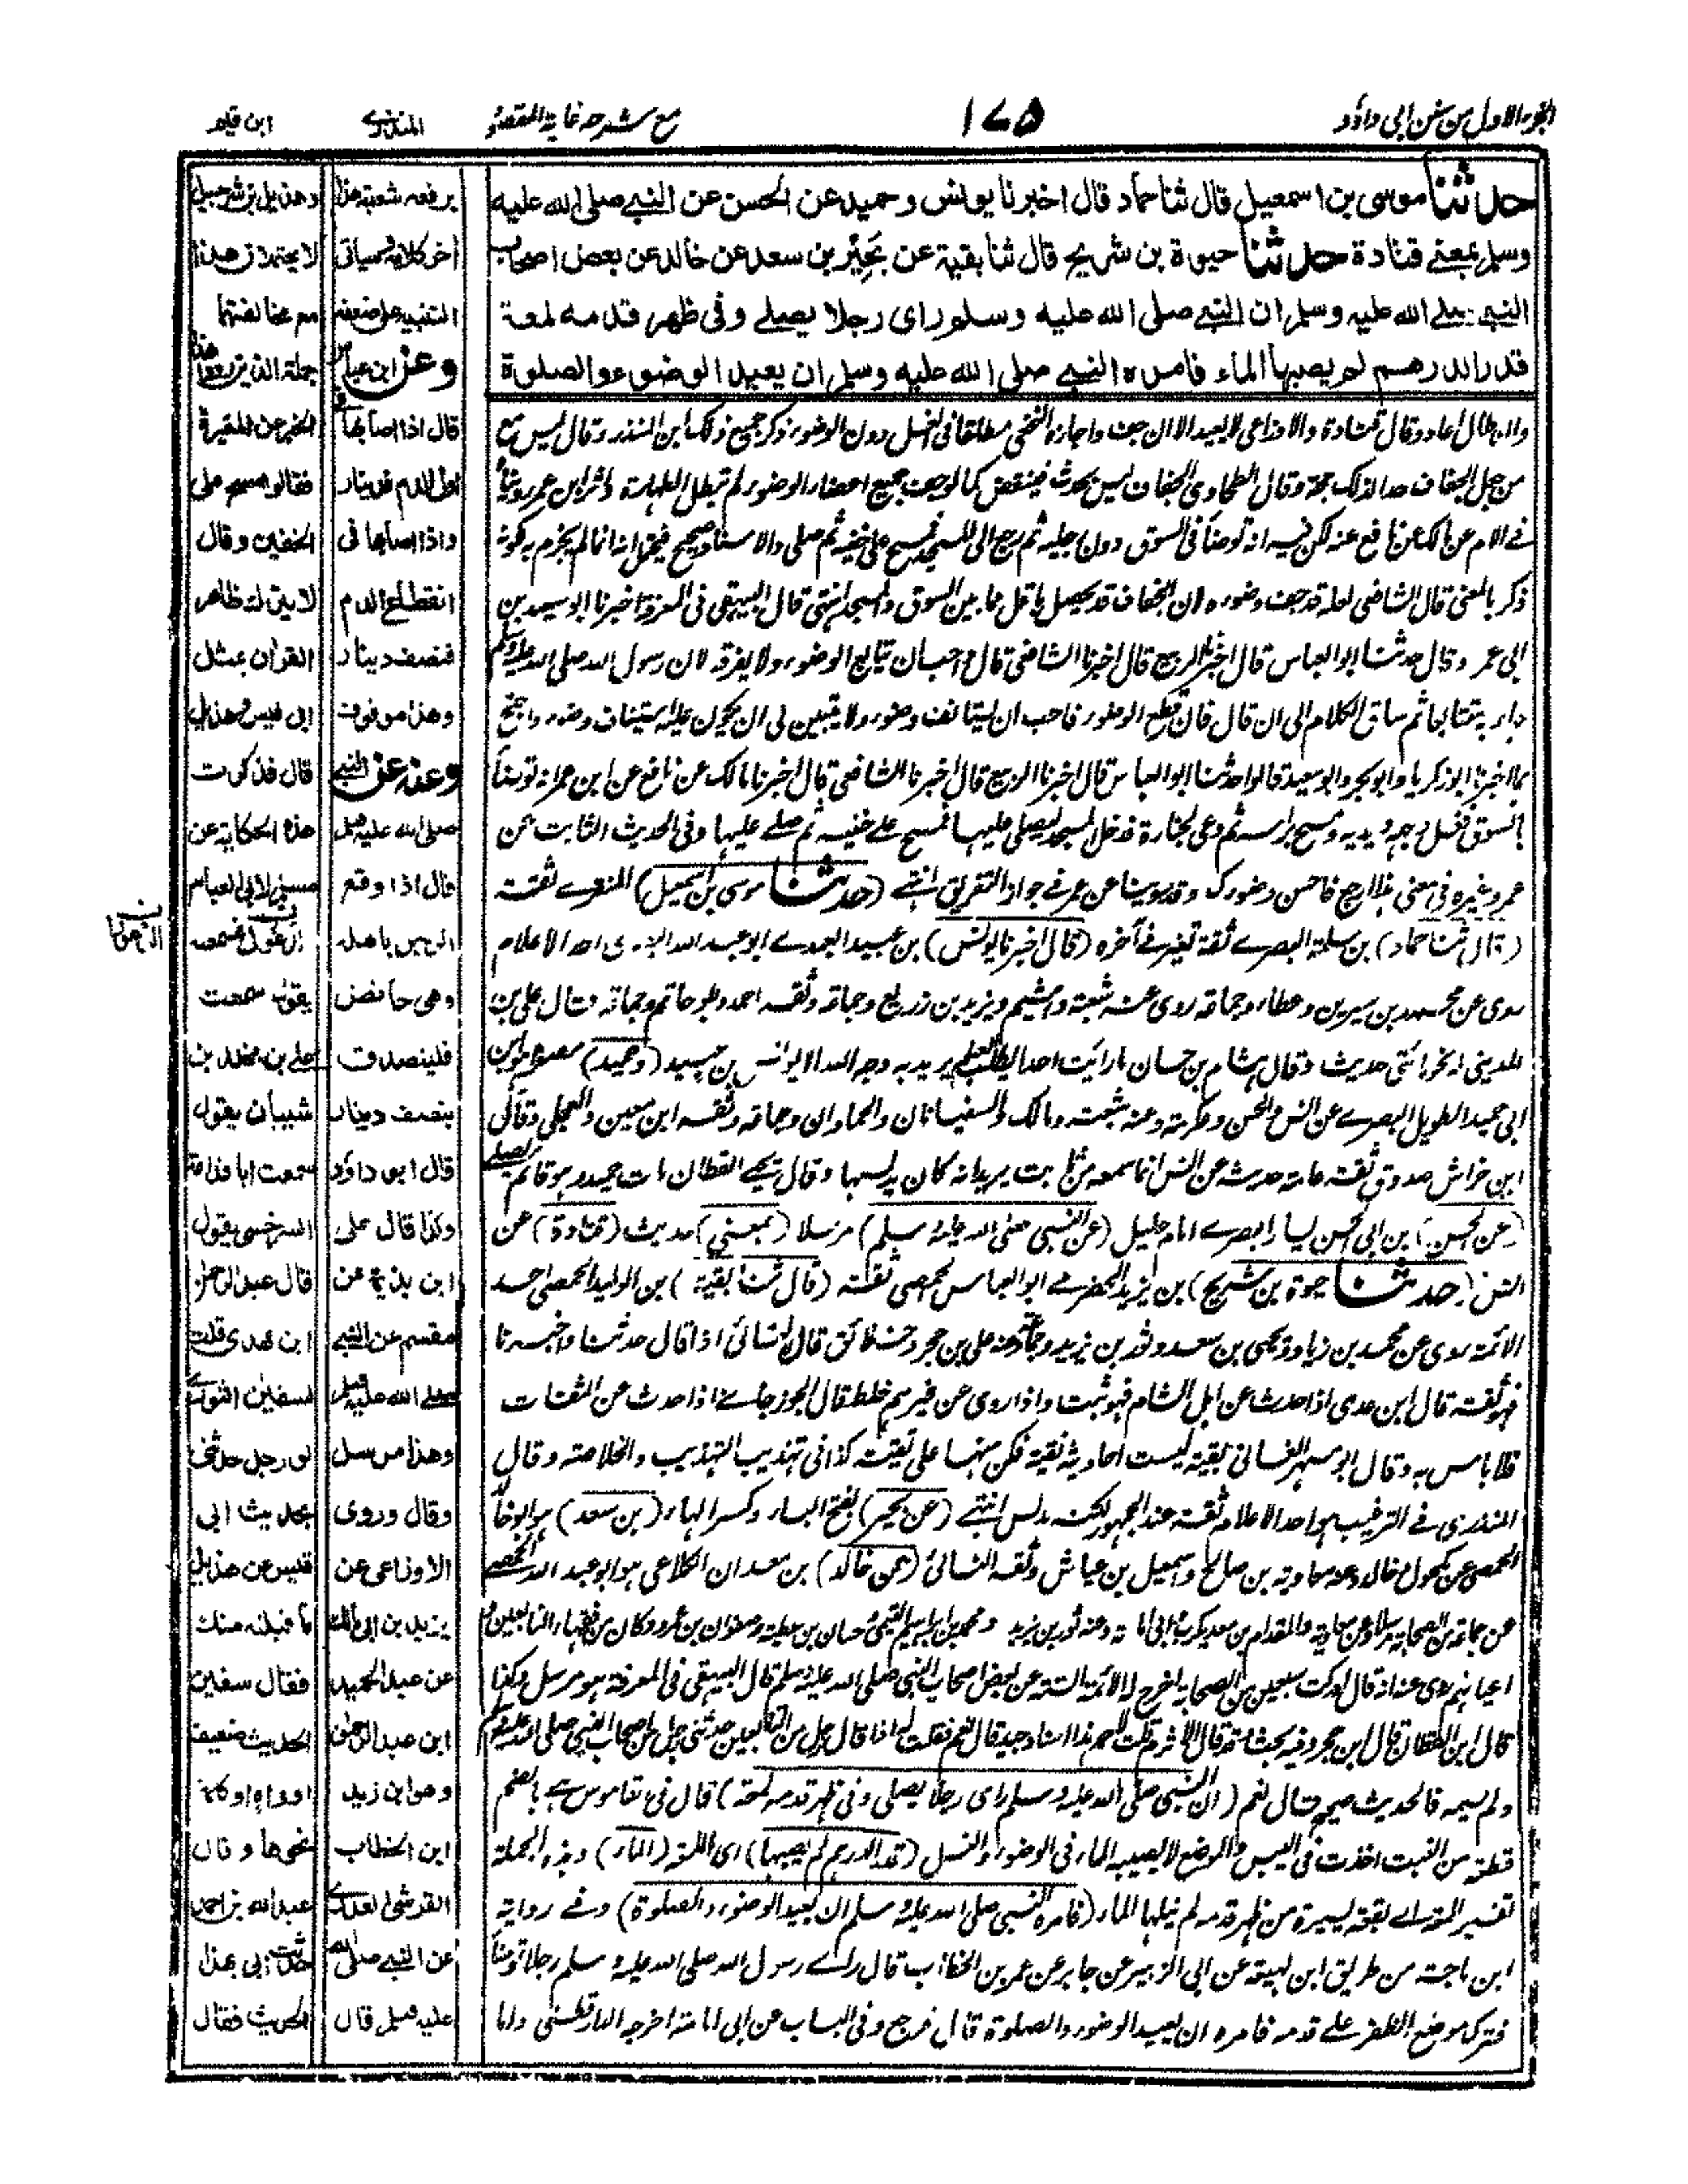 الجزء الاول من سنن ابی داؤد
١٧٥
مع شرحه غاية المقصود
المنذری
ابن قيم
حدثنا موسى بن اسمعيل قال ثنا حماد قال اخبرنا يونس وحميد عن الحسن عن النبي صلى الله عليه
وسلم بمعنى قتادة حدثنا حيوة بن شريح قال ثنا بقية عن بَحِيْر بن سعد عن خالد عن بعض اصحاب
النبي صلى الله عليه وسلم ان النبي صلى الله عليه وسلم راى رجلا يصلي وفى ظهر قدمه لمعة
قدر الدرهم لم يصبها الماء فامره النبي صلى الله عليه وسلم ان يعيد الوضوء والصلوة
من جعل الجفاف حدا لذلك حجة وقال الطحاوى الجفاف ليس بحدث فينقض كما لو جف جميع اعضاء الوضوء لم تبطل الطهارة واثر ابن عمر رويناه
فى الام عن مالك عن نافع عنه لكن فيه انه توضأ فى السوق دون رجليه ثم رجع الى المسجد فمسح على خفيه ثم صلى والاسناد صحيح فيحتمل انه انما لم يجزم به لكونه
ذكر بالمعنى قال الشافعى لعله قد جف وضوءه لان الجفاف قد يحصل باقل مما بين السوق والمسجد انتهى قال البيهقى فى المعرفة اخبرنا ابو سعيد بن
ابى عمرو قال حدثنا ابو العباس قال اخبرنا الربيع قال اخبرنا الشافعى قال واحب ان يتابع الوضوء ولا يفرقه لان رسول الله صلى الله عليه وسلم
جاء به متتابعا ثم ساق الكلام الى ان قال فان قطع الوضوء فاحب ان يستانف وضوء ولا يتبين لى ان يكون عليه استيناف وضوء واحتج
بما اخبرنا ابو زكريا وابو بكر وابو سعيد قالوا حدثنا ابو العباس قال اخبرنا الربيع قال اخبرنا الشافعى قال اخبرنا مالك عن نافع عن ابن عمر انه توضأ
بالسوق فغسل وجهه ويديه ومسح براسه ثم دعى لجنازة فدخل المسجد ليصلى عليها فمسح على خفيه ثم صلى عليها وفى الحديث الثابت عن
عمر وغيره فى معنى هذا ارجع فاحسن وضوءك وقد روينا عن عمر فى جواز التفريق انتهى (حدثنا موسى بن اسمعيل) المنقرى ثقة
(قال ثنا حماد) بن سلمة البصرى ثقة تغير فى آخره (قال اخبرنا يونس) بن عبيد العبدى ابو عبد الله البصرى احد الاعلام
روى عن محمد بن سيرين وعطاء وجماعة روى عنه شعبة وهشيم ويزيد بن زريع وجماعة وثقه احمد وابو حاتم وجماعة وقال على بن
المدينى له نحو مائتى حديث وقال هشام بن حسان ما رأيت احدا يطلب العلم يريد به وجه الله الا يونس بن عبيد (وحميد)
ابى حميد الطويل البصرى عن انس والحسن وعكرمة وعنه شعبة ومالك والسفيانان والحمادان وجماعة وثقه ابن معين والعجلى وقال
ابن خراش صدوق ثقة عامة حديثه عن انس انما سمعه من ثابت يريد انه كان يدلسها وقال يحيى القطان مات حميد وهو قائم يصلى
(عن الحسن) بن ابى الحسن يسار البصرى امام جليل (عن النبى صلى الله عليه وسلم) مرسلا (بمعنى) حديث (قتادة) عن
انس (حدثنا حيوة بن شريح) بن يزيد الحضرمى ابو العباس الحمصى ثقة (قال ثنا بقية) بن الوليد الحمصى احد
الائمة روى عن محمد بن زياد ويحيى بن سعد وثور بن يزيد وجماعة وعنه على بن حجر وخلائق قال النسائى اذا قال حدثنا واخبرنا
فهو ثقة قال ابن عدى اذا حدث عن اهل الشام فهو ثبت واذا روى عن غيرهم خلط قال الجوزجانى اذا حدث عن الثقات
فلا باس به وقال ابو مسهر الغسانى بقية ليست احاديثه نقية فكن منها على تقية كذا فى تهذيب التهذيب والخلاصة وقال
المنذرى فى الترغيب هو احد الاعلام ثقة عند الجمهور لكنه يدلس انتهى (عن بحير) بفتح الباء وكسر الحاء (بن سعد) هو ابو خالد
الحمصى عن مكحول وخالد وعنه معاوية بن صالح واسمعيل بن عياش وثقه النسائى (عن خالد) بن معدان الكلاعى هو ابو عبد الله الحمصى
قال ابن القطان قال ابن حجر وفيه بحث وقد قال الاثرم قلت لاحمد هذا اسناد جيد قال نعم فقلت له اذا قال رجل من التابعين حدثنى رجل من اصحاب النبى صلى الله عليه وسلم
ولم يسمه فالحديث صحيح قال نعم (ان النبى صلى الله عليه وسلم راى رجلا يصلى وفى ظهر قدمه لمعة) قال فى القاموس هى بالضم
قطعة من النبت اخذت فى اليبس والموضع لا يصيبه الماء فى الوضوء والغسل (قدر الدرهم لم يصبها) اى اللمعة (الماء) وهذه الجملة
تفسير اللمعة اى بقعة يسيرة من ظهر قدمه لم ينلها الماء (فامره النبى صلى الله عليه وسلم ان يعيد الوضوء والصلوة) وفى رواية
ابن ماجة من طريق ابن لهيعة عن ابى الزبير عن جابر عن عمر بن الخطاب قال راى رسول الله صلى الله عليه وسلم رجلا توضأ
فترك موضع الظفر على قدمه فامره ان يعيد الوضوء والصلوة قال فرجع وفى الباب عن ابى امامة اخرجه الدارقطنى واما
يرفعه شعبة هذا
التنبيه على ضعفه
وعن ابن عباس
قال اذا اصابها
اول الدم فدينار
واذا اصابها فى
انقطاع الدم
فنصف دينار
وهذا موقوف
وعنه عن النبي
صلى الله عليه وسلم
قال اذا وقع
الرجل باهله
وهى حائض
فليتصدق
بنصف دينار
قال ابو داود
وكذا قال على
ابن بذيمة عن
مقسم عن النبى
صلى الله عليه وسلم
وهذا مرسل
وقال وروى
الاوزاعى عن
يزيد بن ابى مالك
عن عبد الحميد
ابن عبد الرحمن
ابن الخطاب
القرشى العدوى
عن النبى صلى الله
عليه وسلم قال
وهذيل بن شرحبيل
لا يحتملان هذا
مع مخالفتهما
الخبر عن المغيرة
فقالوا مسح على
الخفين وقال
لا يترك ظاهر
القران بمثل
ابى قيس وهذيل
قال فذكرت
هذه الحكاية عن
مسلم لابى العباس
يقول سمعت
على بن مخلد بن
شيبان يقول
سمعت ابا قدامة
السرخسى يقول
قال عبد الرحمن
ابن مهدى قلت
لسفيان الثورى
لو رجل حدثنى
بحديث ابى
قيس عن هذيل
ما قبلته منك
فقال سفين
الحديث ضعيف
او واه او كلمة
نحوها وقال
عبد الله بن احمد
حدثت ابى بهذا
الحديث فقال